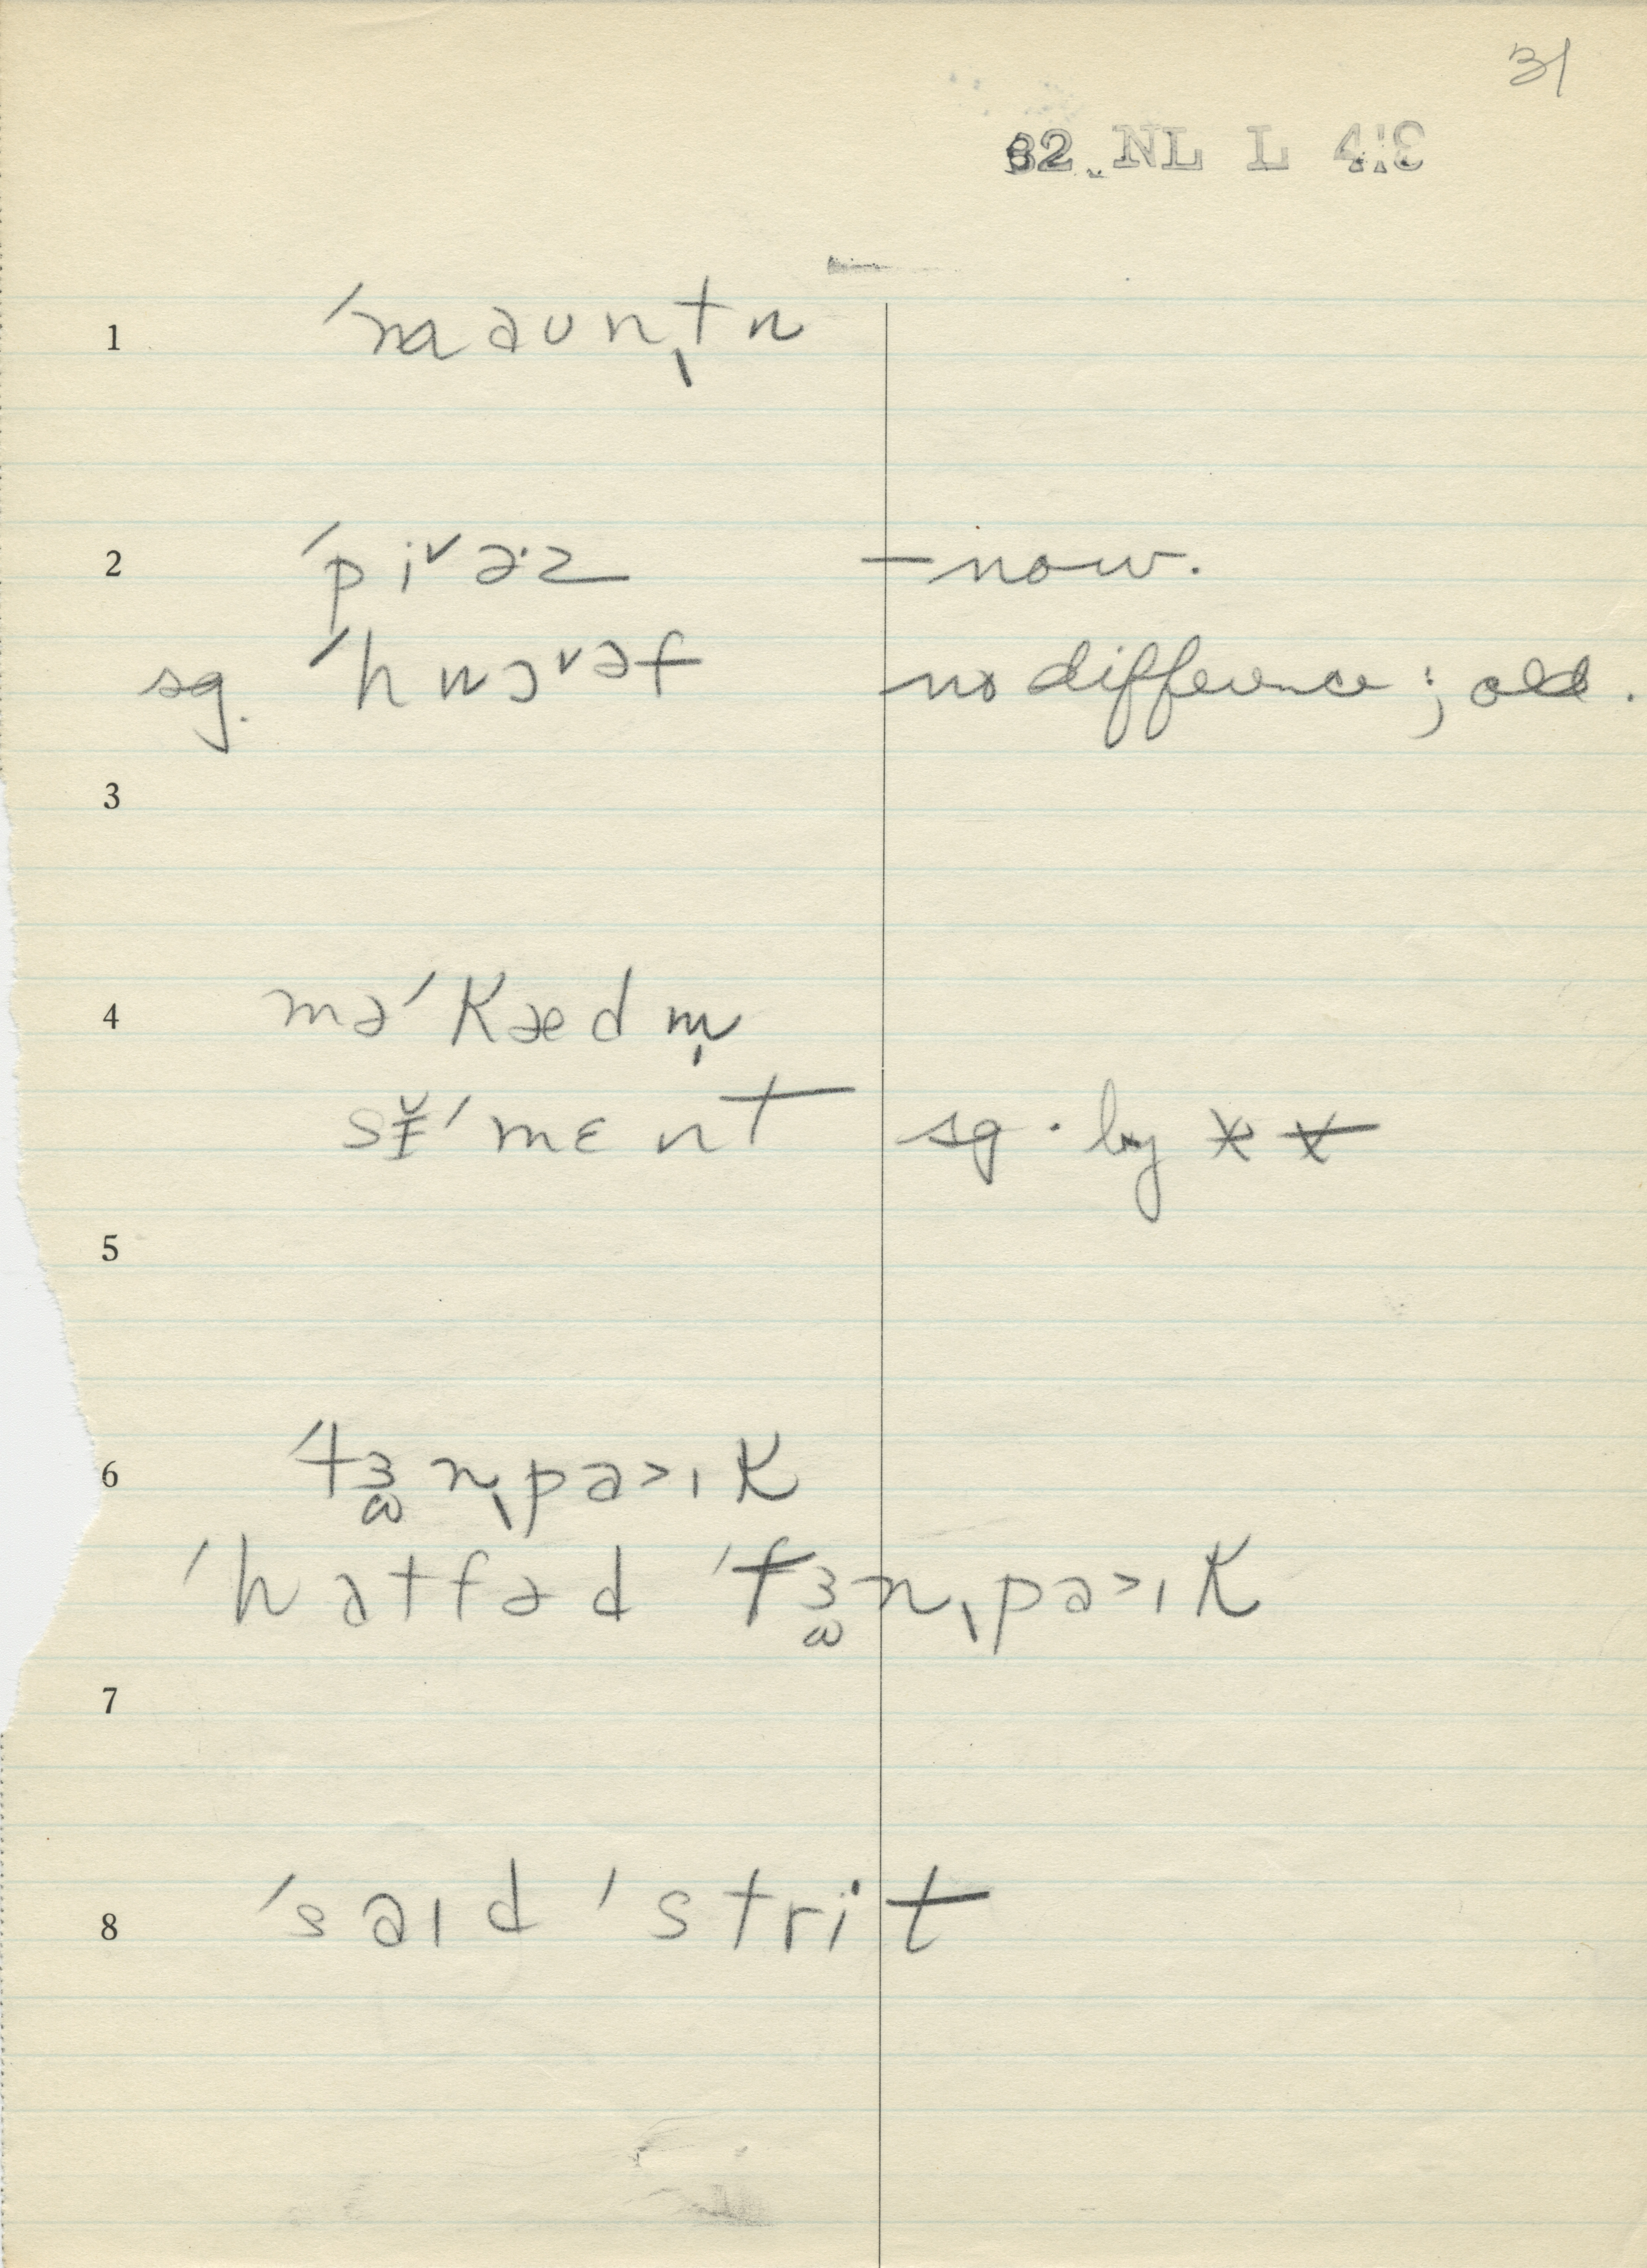 31
82 NL L 4:3
1 ˈmaʊnˌtn
2 ˈpi˅ə·z – now.
sg. ˈhwɔ˅əf no difference ; old.
3
4 məˈkædm̩
sɪ̵̆ˈmɛnt sg. by * *
5
6 ˈtɜnˌpa>ɪk
ˈhatfəd ˈtɜnˌpa>ɪk
7
8 ˈsaɪd ˈstrit